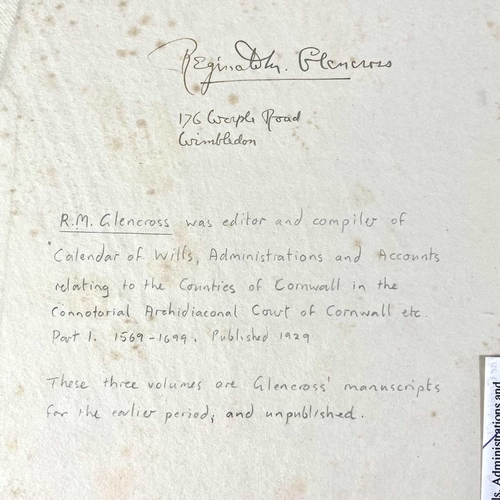 Reginald M. Glencross
176 Worple Road
Wimbledon
R.M. Glencross was editor and compiler of
'Calendar of Wills, Administrations and Accounts
relating to the Counties of Cornwall in the
Connotorial Archidiaconal Court of Cornwall etc.
Part 1. 1569-1699. Published 1929
These three volumes are Glencross' manuscripts
for the earlier period, and unpublished.
ls, Administrations and